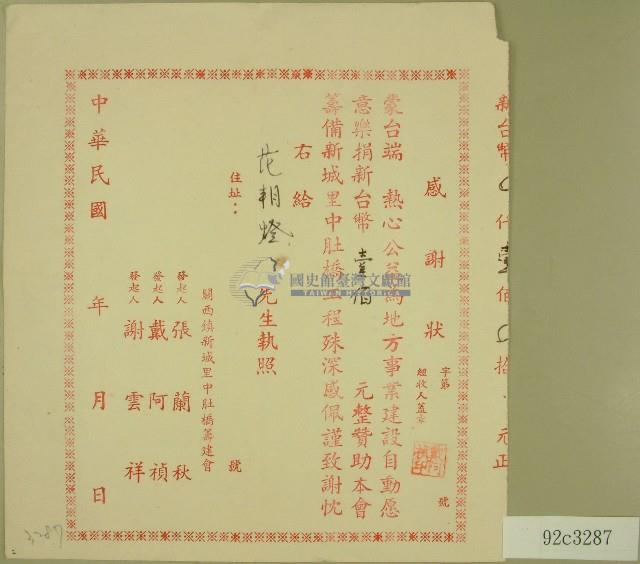 新台幣 仟壹佰 拾 元正
感謝狀
字第 號
經收人蓋章
蒙台端 熱心公益為地方事業建設自動愿
意樂捐新台幣 壹佰 元整贊助本會
籌備新城里中肚橋工程殊深感佩謹致謝忱
右給
朝燈 先生執照
住址： 號
關西鎮新城里中肚橋籌建會
發起人 張蘭秋
發起人 戴阿禎
發起人 謝雲祥
中華民國 年 月 日
國史館臺灣文獻館
TAIWAN HISTORICA
3287
92c3287